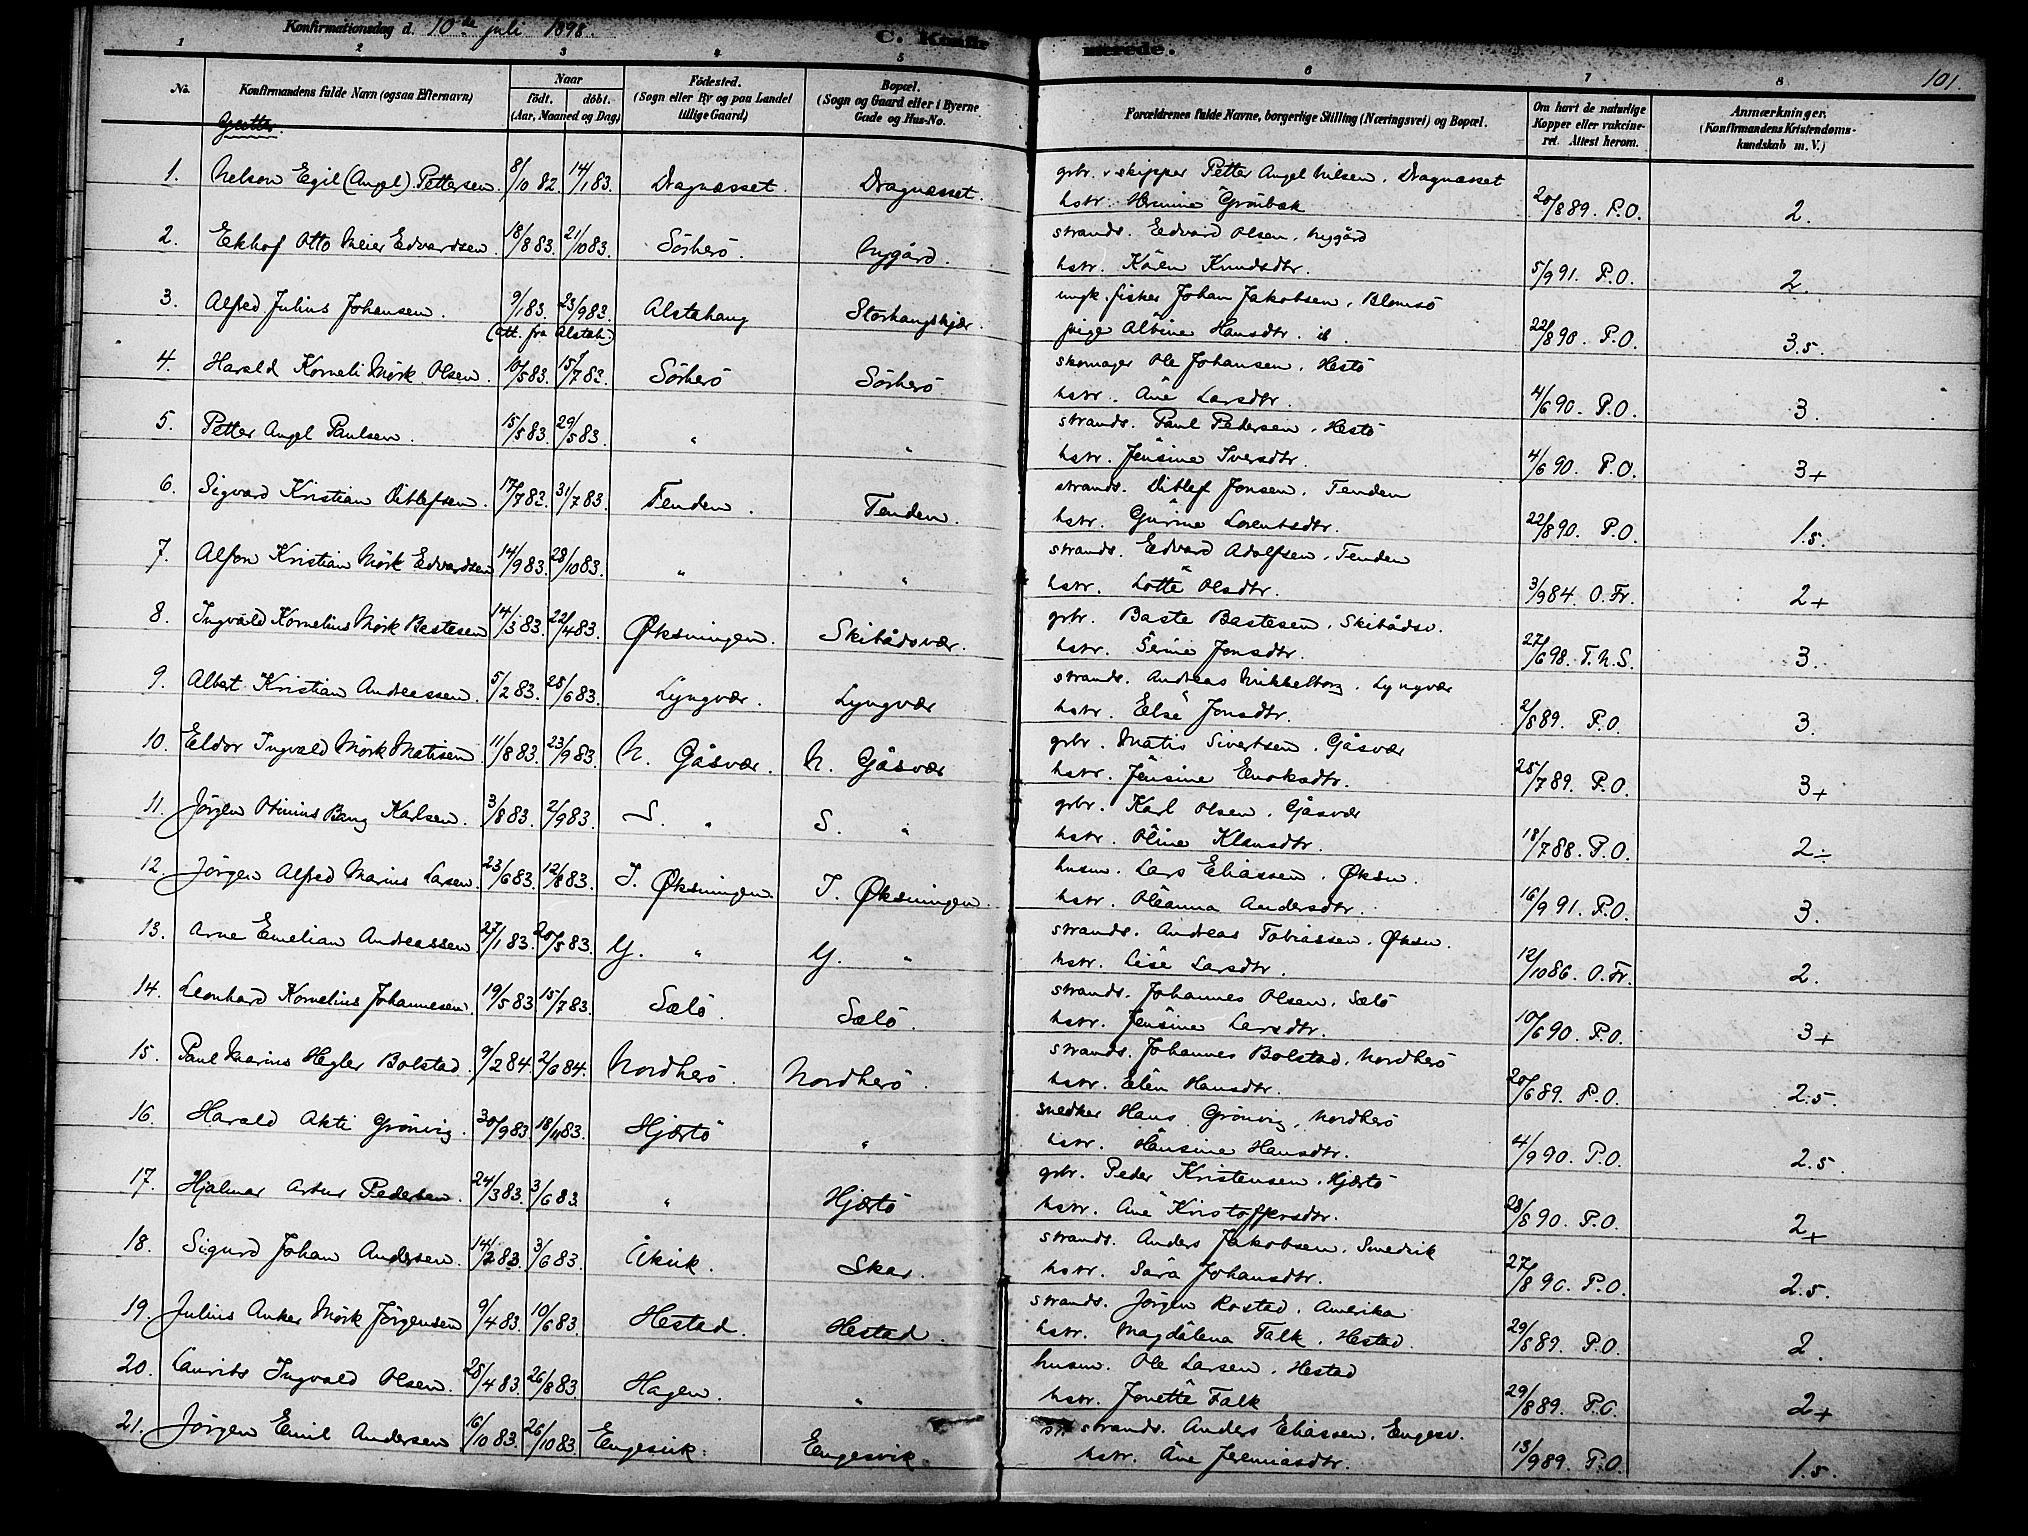 Konfirmationsdag d. 10de juli 1898.
C. Konfirmerede.
101.
1 2 3 4 5 6 7 8
No.
Konfirmandens fulde Navn (ogsaa Efternavn)
Naar
født. døbt.
(Aar, Maaned og Dag)
Fødested.
(Sogn eller By og paa Landet
tillige Gaard)
Bopæl.
(Sogn og Gaard eller i Byerne
Gade og Hus-No.
Forældrenes fulde Navne, borgerlige Stilling (Næringsvei) og Bopæl.
Om havt de naturlige
Kopper eller vakcine-
ret. Attest herom.
Anmærkninger.
(Konfirmandens Kristendoms-
kundskab m. V.)
Gutter.
1. Nelson Egil (Angel) Pettersen. 8/10 82. 14/1 83. Dragnæsset. Dragnæsset. gbr. & skipper Petter Angel Nilsen. Dragnæsset
hstr. Hermine Grönbæk 20/8 89. P.O. 2.
2. Ekhof Otto Meier Edvardsen. 18/8 83. 21/10 83. Sörherö. Nygård. strands. Edvard Olsen. Nygård
hstr. Karen Knudsdtr. 5/9 91. P.O. 2.
3. Alfred Julius Johansen. 9/1 83. 23/9 83. Alstahaug Storhaugskjær. ungk. fisker Johan Jakobsen. Blomsö
(att. fra Alstah.) pige Albine Hansdtr. ib. 22/8 90. P.O. 3.5.
4. Harald Korneli Mörk Olsen. 10/5 83. 15/7 83. Sörherö Sörherö. skomager Ole Johansen. Hestö
hstr. Ane Larsdtr. 4/6 90. P.O. 3.
5. Petter Angel Paulsen. 15/5 83. 29/5 83. " " strands. Paul Pedersen. Hestö
hstr. Jensine Iversdtr. 4/6 90. P.O. 3+
6. Sigvard Kristian Ditlefsen. 17/7 83. 31/7 83. Tenden. Tenden. strands. Ditlef Jonsen. Tenden
hstr. Gurine Lorentsdtr. 22/8 90. P.O. 1.5.
7. Alfon Kristian Mörk Edvardsen 14/9 83. 28/10 83. " " strands. Edvard Adolfsen. Tenden
hstr. Lotte Olsdtr. 3/9 84. O.Fr. 2+
8. Ingvald Kornelius Mörk Bastesen 14/3 83. 22/4 83. Øksningen. Skibådsvær. gbr. Baste Bastesen. Skibådsv.
hstr. Serine Jonsdtr. 27/6 98. T.N.S. 3.
9. Albert Kristian Andreassen. 5/2 83. 28/6 83. Lyngvær. Lyngvær strands. Andreas Mikkelborg. Lyngvær
hstr. Else Jonsdtr. 2/8 89. P.O. 3.
10. Eldor Ingvald Mörk Matisen 11/8 83. 23/9 83. N. Gåsvær. N. Gåsvær gbr. Matis Sivertsen. Gåsvær
hstr. Jensine Enoksdtr. 25/7 89. P.O. 3+
11. Jörgen Otinius Bang Karlsen. 3/8 83. 2/9 83. S. " S. " gbr. Karl Olsen. Gåsvær
hstr. Oline Klausdtr. 18/7 88. P.O. 2÷
12. Jörgen Alfred Marius Larsen. 23/6 83. 12/8 83. I. Øksningen. I. Øksningen. husm. Lars Eliassen. Øksn.
hstr. Oleanna Andersdtr. 16/9 91. P.O. 3.
13. Arne Emelian Andreassen 27/1 83. 20/5 83. Y. " Y. " strands. Andreas Tobiassen. Øksn.
hstr. Lise Larsdtr. 12/10 86. O.Fr. 2.
14. Leonhard Kornelius Johannesen. 19/5 83. 15/7 83. Sælö. Sælö. strands. Johannes Olsen. Sælö
hstr. Jensine Larsdtr. 10/6 90. P.O. 3+
15. Paul Marius Hegler Bolstad. 9/2 84. 2/6 84. Nordherö. Nordherö. strands. Johannes Bolstad. Nordherö
hstr. Elen Hansdtr. 20/6 89. P.O. 2.5.
16. Harald Akti Grönvig. 30/9 83. 18/11 83. Hjærtö " snedker Hans Grönvig. Nordherö
hstr. Hansine Hansdtr. 4/9 90. P.O. 2.5.
17. Hjalmar Artur Pedersen. 24/3 83. 3/6 83. " Hjærtö gbr. Peder Kristensen. Hjærtö
hstr. Ane Kristoffersdtr. 28/8 90. P.O. 2+
18. Sigurd Johan Andersen. 14/2 83. 3/6 83. Åkvik. Skar. strands. Anders Jakobsen. Smedvik
hstr. Sara Johansdtr. 27/8 90. P.O. 2.5.
19. Julius Anker Mörk Jörgensen 9/4 83. 10/6 83. Hestad. Hestad. strands. Jörgen Rostad. Amerika
hstr. Magdalena Falk. Hestad. 29/8 89. P.O. 2.
20. Laurits Ingvald Olsen. 28/4 83. 26/8 83. Hagen. " husm. Ole Larsen. Hestad
hstr. Jonette Falk 29/8 89. P.O. 2+
21. Jörgen Emil Andersen 16/10 83. 26/10 83. Engesvik. Engesvik. strands. Anders Eliassen. Engesv.
hstr. Ane Jeremiasdtr. 13/9 89. P.O. 1.5.